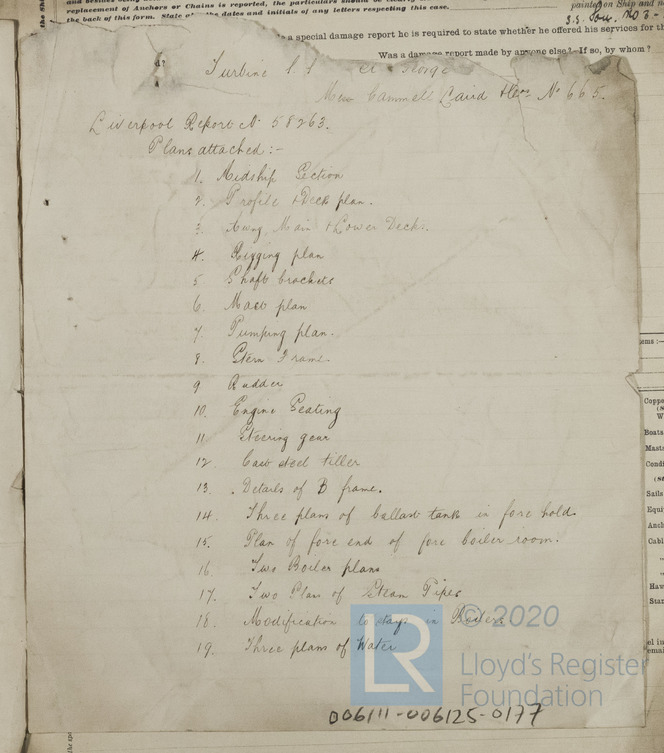 replacement of Anchors or Chains is reported, the particulars should be
the back of this form. State the dates and initials of any letters respecting this case.
painted on Ship and
a special damage report he is required to state whether he offered his services for
Was a damage report made by anyone else? If so, by whom?
Turbine S.S. St George
Cammell Laird No 665.
Liverpool Report No 58263.
Plans attached:-
1. Midship Section
2. Profile & Deck plan.
3. Awng Main & Lower Decks.
4. Rigging plan
5 Shaft brackets
6. Mast plan
7. Pumping plan.
8. Stern Frame.
9 Rudder
10. Engine Seating
11. Steering gear
12. Cast steel tiller
13. Details of B frame.
14. Three plans of ballast tank in fore hold.
15. Plan of fore end of fore boiler room.
16. Two Boiler plans
17. Two Plans of Steam Pipes
18. Modification to stays in Boilers
19. Three plans of Water
LR © 2020
Lloyd's Register
Foundation
006111-006125-0177